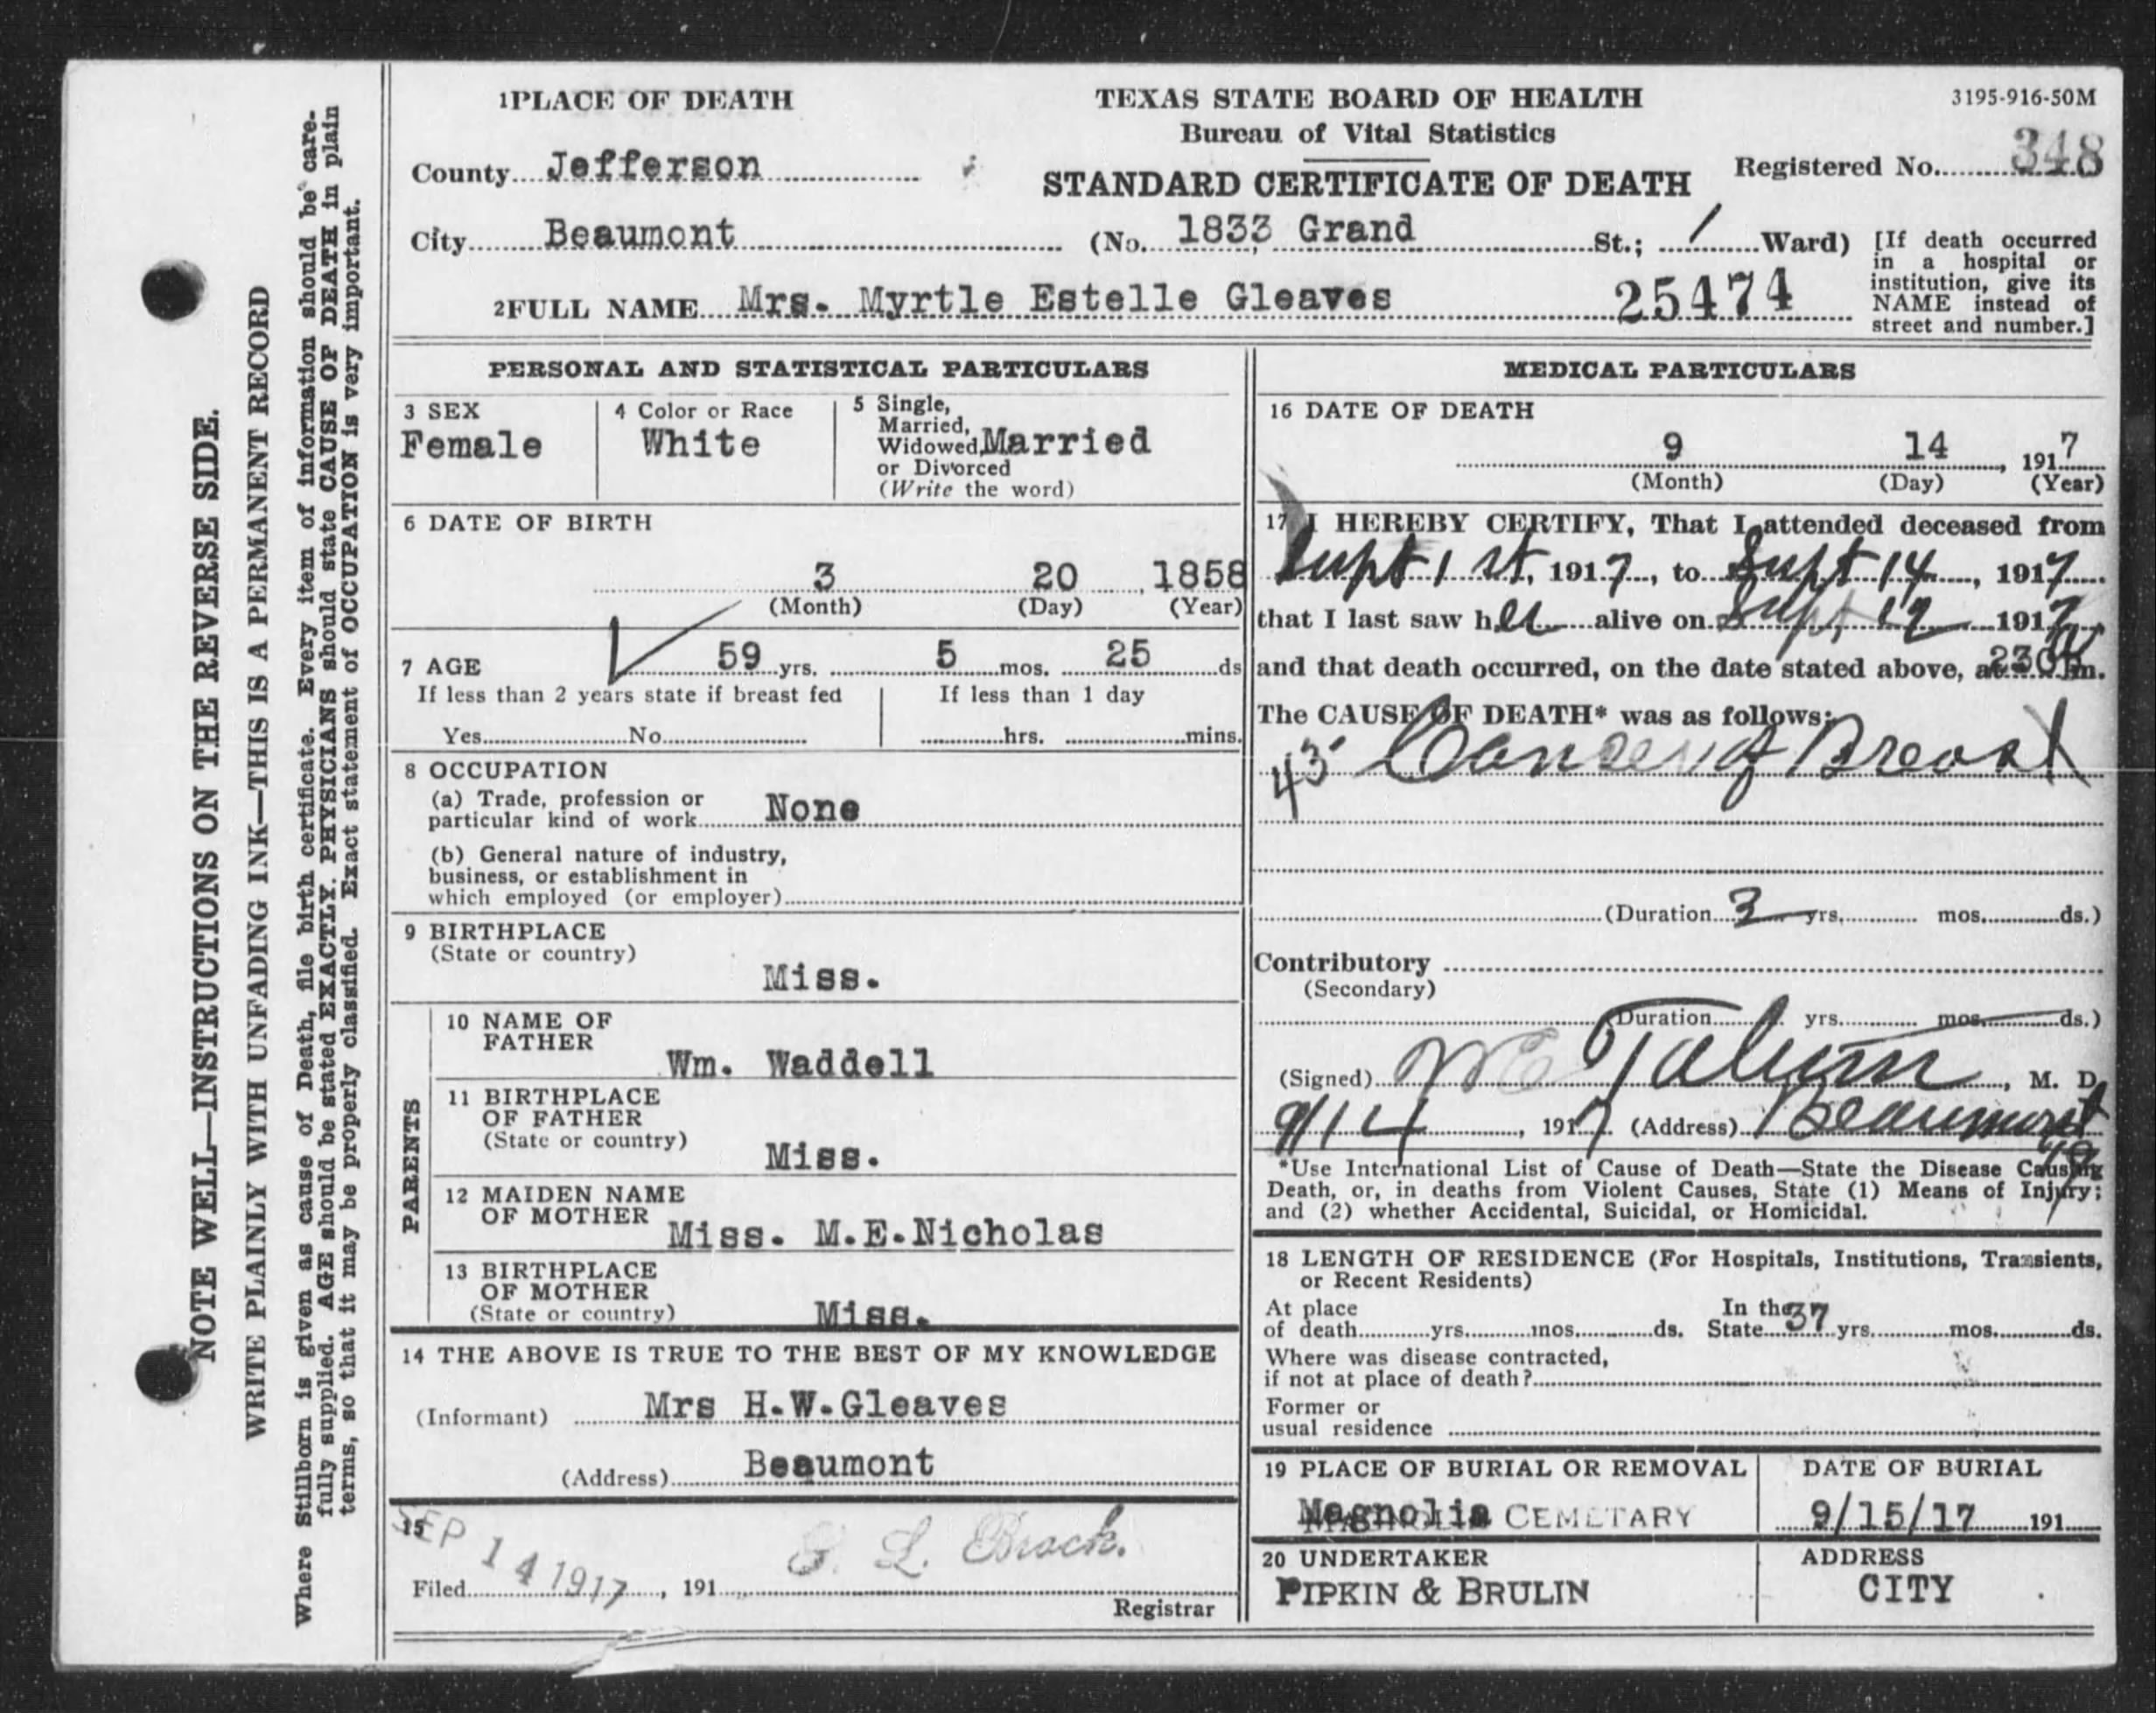 NOTE WELL—INSTRUCTIONS ON THE REVERSE SIDE.
WRITE PLAINLY WITH UNFADING INK—THIS IS A PERMANENT RECORD
Where Stillborn is given as cause of Death, file birth certificate. Every item of information should be care-
fully supplied. AGE should be stated EXACTLY. PHYSICIANS should state CAUSE OF DEATH in plain
terms, so that it may be properly classified. Exact statement of OCCUPATION is very important.
1 PLACE OF DEATH
TEXAS STATE BOARD OF HEALTH
3195-916-50M
Bureau of Vital Statistics
County Jefferson
STANDARD CERTIFICATE OF DEATH
Registered No. 348
City Beaumont (No. 1833 Grand St.; 1 Ward)
[If death occurred
in a hospital or
institution, give its
NAME instead of
street and number.]
2 FULL NAME Mrs. Myrtle Estelle Gleaves 25474
PERSONAL AND STATISTICAL PARTICULARS
3 SEX
Female
4 Color or Race
White
5 Single,
Married,
Widowed, Married
or Divorced
(Write the word)
6 DATE OF BIRTH
3 20, 1858
(Month) (Day) (Year)
7 AGE 59 yrs. 5 mos. 25 ds
If less than 2 years state if breast fed
Yes No
If less than 1 day
hrs. mins.
8 OCCUPATION
(a) Trade, profession or
particular kind of work None
(b) General nature of industry,
business, or establishment in
which employed (or employer)
9 BIRTHPLACE
(State or country)
Miss.
PARENTS
10 NAME OF
FATHER
Wm. Waddell
11 BIRTHPLACE
OF FATHER
(State or country)
Miss.
12 MAIDEN NAME
OF MOTHER Miss. M.E.Nicholas
13 BIRTHPLACE
OF MOTHER
(State or country) Miss.
14 THE ABOVE IS TRUE TO THE BEST OF MY KNOWLEDGE
(Informant) Mrs H.W.Gleaves
(Address) Beaumont
15
SEP 14 1917
G. L. Brock.
Filed, 191
Registrar
MEDICAL PARTICULARS
16 DATE OF DEATH
9 14, 1917
(Month) (Day) (Year)
17 I HEREBY CERTIFY, That I attended deceased from
Sept 1 st, 1917, to Sept 14, 1917
that I last saw her alive on Sept 12 1917
and that death occurred, on the date stated above, at 230 m.
The CAUSE OF DEATH* was as follows:
43 Cancer of Breast
(Duration 3 yrs. mos. ds.)
Contributory
(Secondary)
(Duration yrs. mos. ds.)
(Signed) W E Tatum, M. D.
9/14, 1917 (Address) Beaumont
*Use International List of Cause of Death—State the Disease Causing
Death, or, in deaths from Violent Causes, State (1) Means of Injury;
and (2) whether Accidental, Suicidal, or Homicidal.
18 LENGTH OF RESIDENCE (For Hospitals, Institutions, Transients,
or Recent Residents)
At place
of death yrs. mos. ds.
In the
State 37 yrs. mos. ds.
Where was disease contracted,
if not at place of death?
Former or
usual residence
19 PLACE OF BURIAL OR REMOVAL
Magnolia CEMETARY
DATE OF BURIAL
9/15/17 191
20 UNDERTAKER
PIPKIN & BRULIN
ADDRESS
CITY